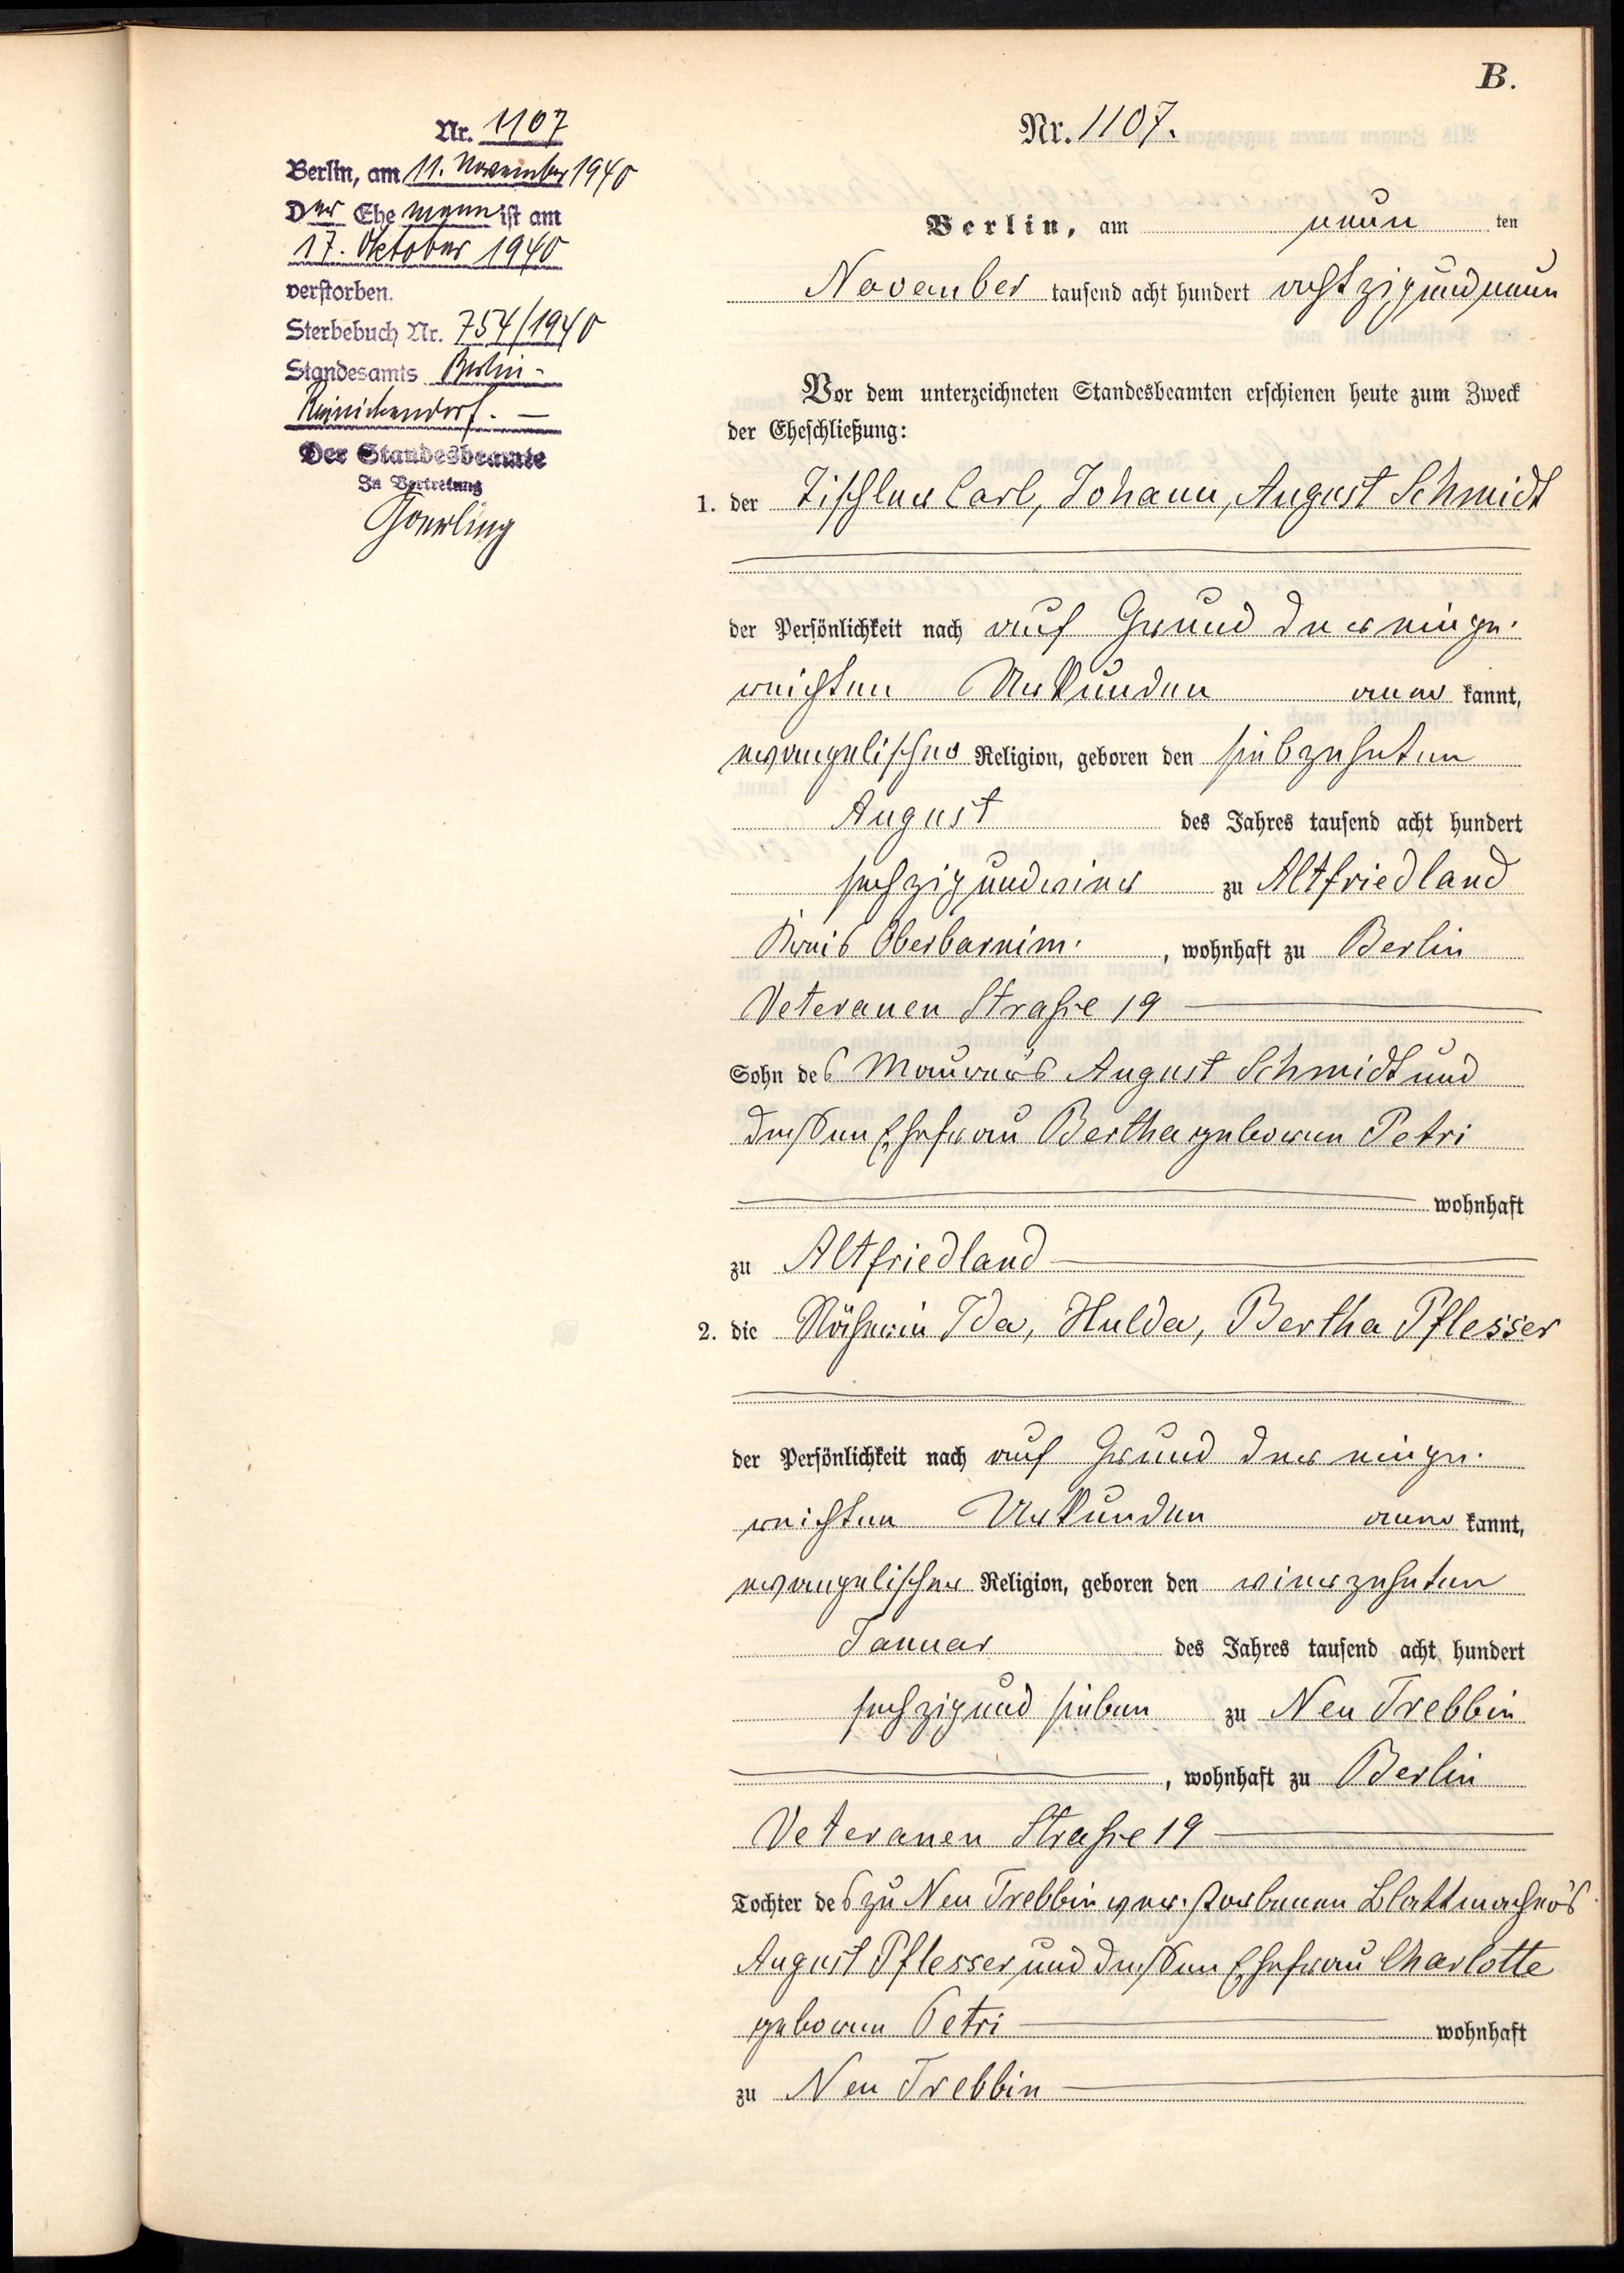 B.
Nr. 1107
Berlin, am 11. November 1940
Der Ehemann ist am
17. Oktober 1940
verstorben.
Sterbebuch Nr. 754/1940
Standesamts Berlin-
Reinickendorf. —
Der Standesbeamte
In Vertretung
Nr. 1107.
Berlin, am neun ten
November tausend acht hundert achtzig und neun
Vor dem unterzeichneten Standesbeamten erschienen heute zum Zweck
der Eheschließung:
1. der Tischler Carl, Johann, August Schmidt
der Persönlichkeit nach auf Grund der einge-
reichten Urkunden aner kannt,
evangelischer Religion, geboren den siebzehnten
August des Jahres tausend acht hundert
sechzig und vier zu Altfriedland
Kreis Oberbarnim. , wohnhaft zu Berlin
Veteranen Straße 19
Sohn des Maurers August Schmidt und
dessen Ehefrau Bertha geborenen Petri
wohnhaft
zu Altfriedland
2. die Näherin Ida, Hulda, Bertha Pflesser
der Persönlichkeit nach auf Grund der einge-
reichten Urkunden aner kannt,
evangelischer Religion, geboren den vierzehnten
Januar des Jahres tausend acht hundert
sechzig und sieben zu Neu Trebbin
, wohnhaft zu Berlin
Veteranen Straße 19
Tochter des zu Neu Trebbin verstorbenen Blattmachers
August Pflesser und dessen Ehefrau Charlotte
geborenen Petri wohnhaft
zu Neu Trebbin